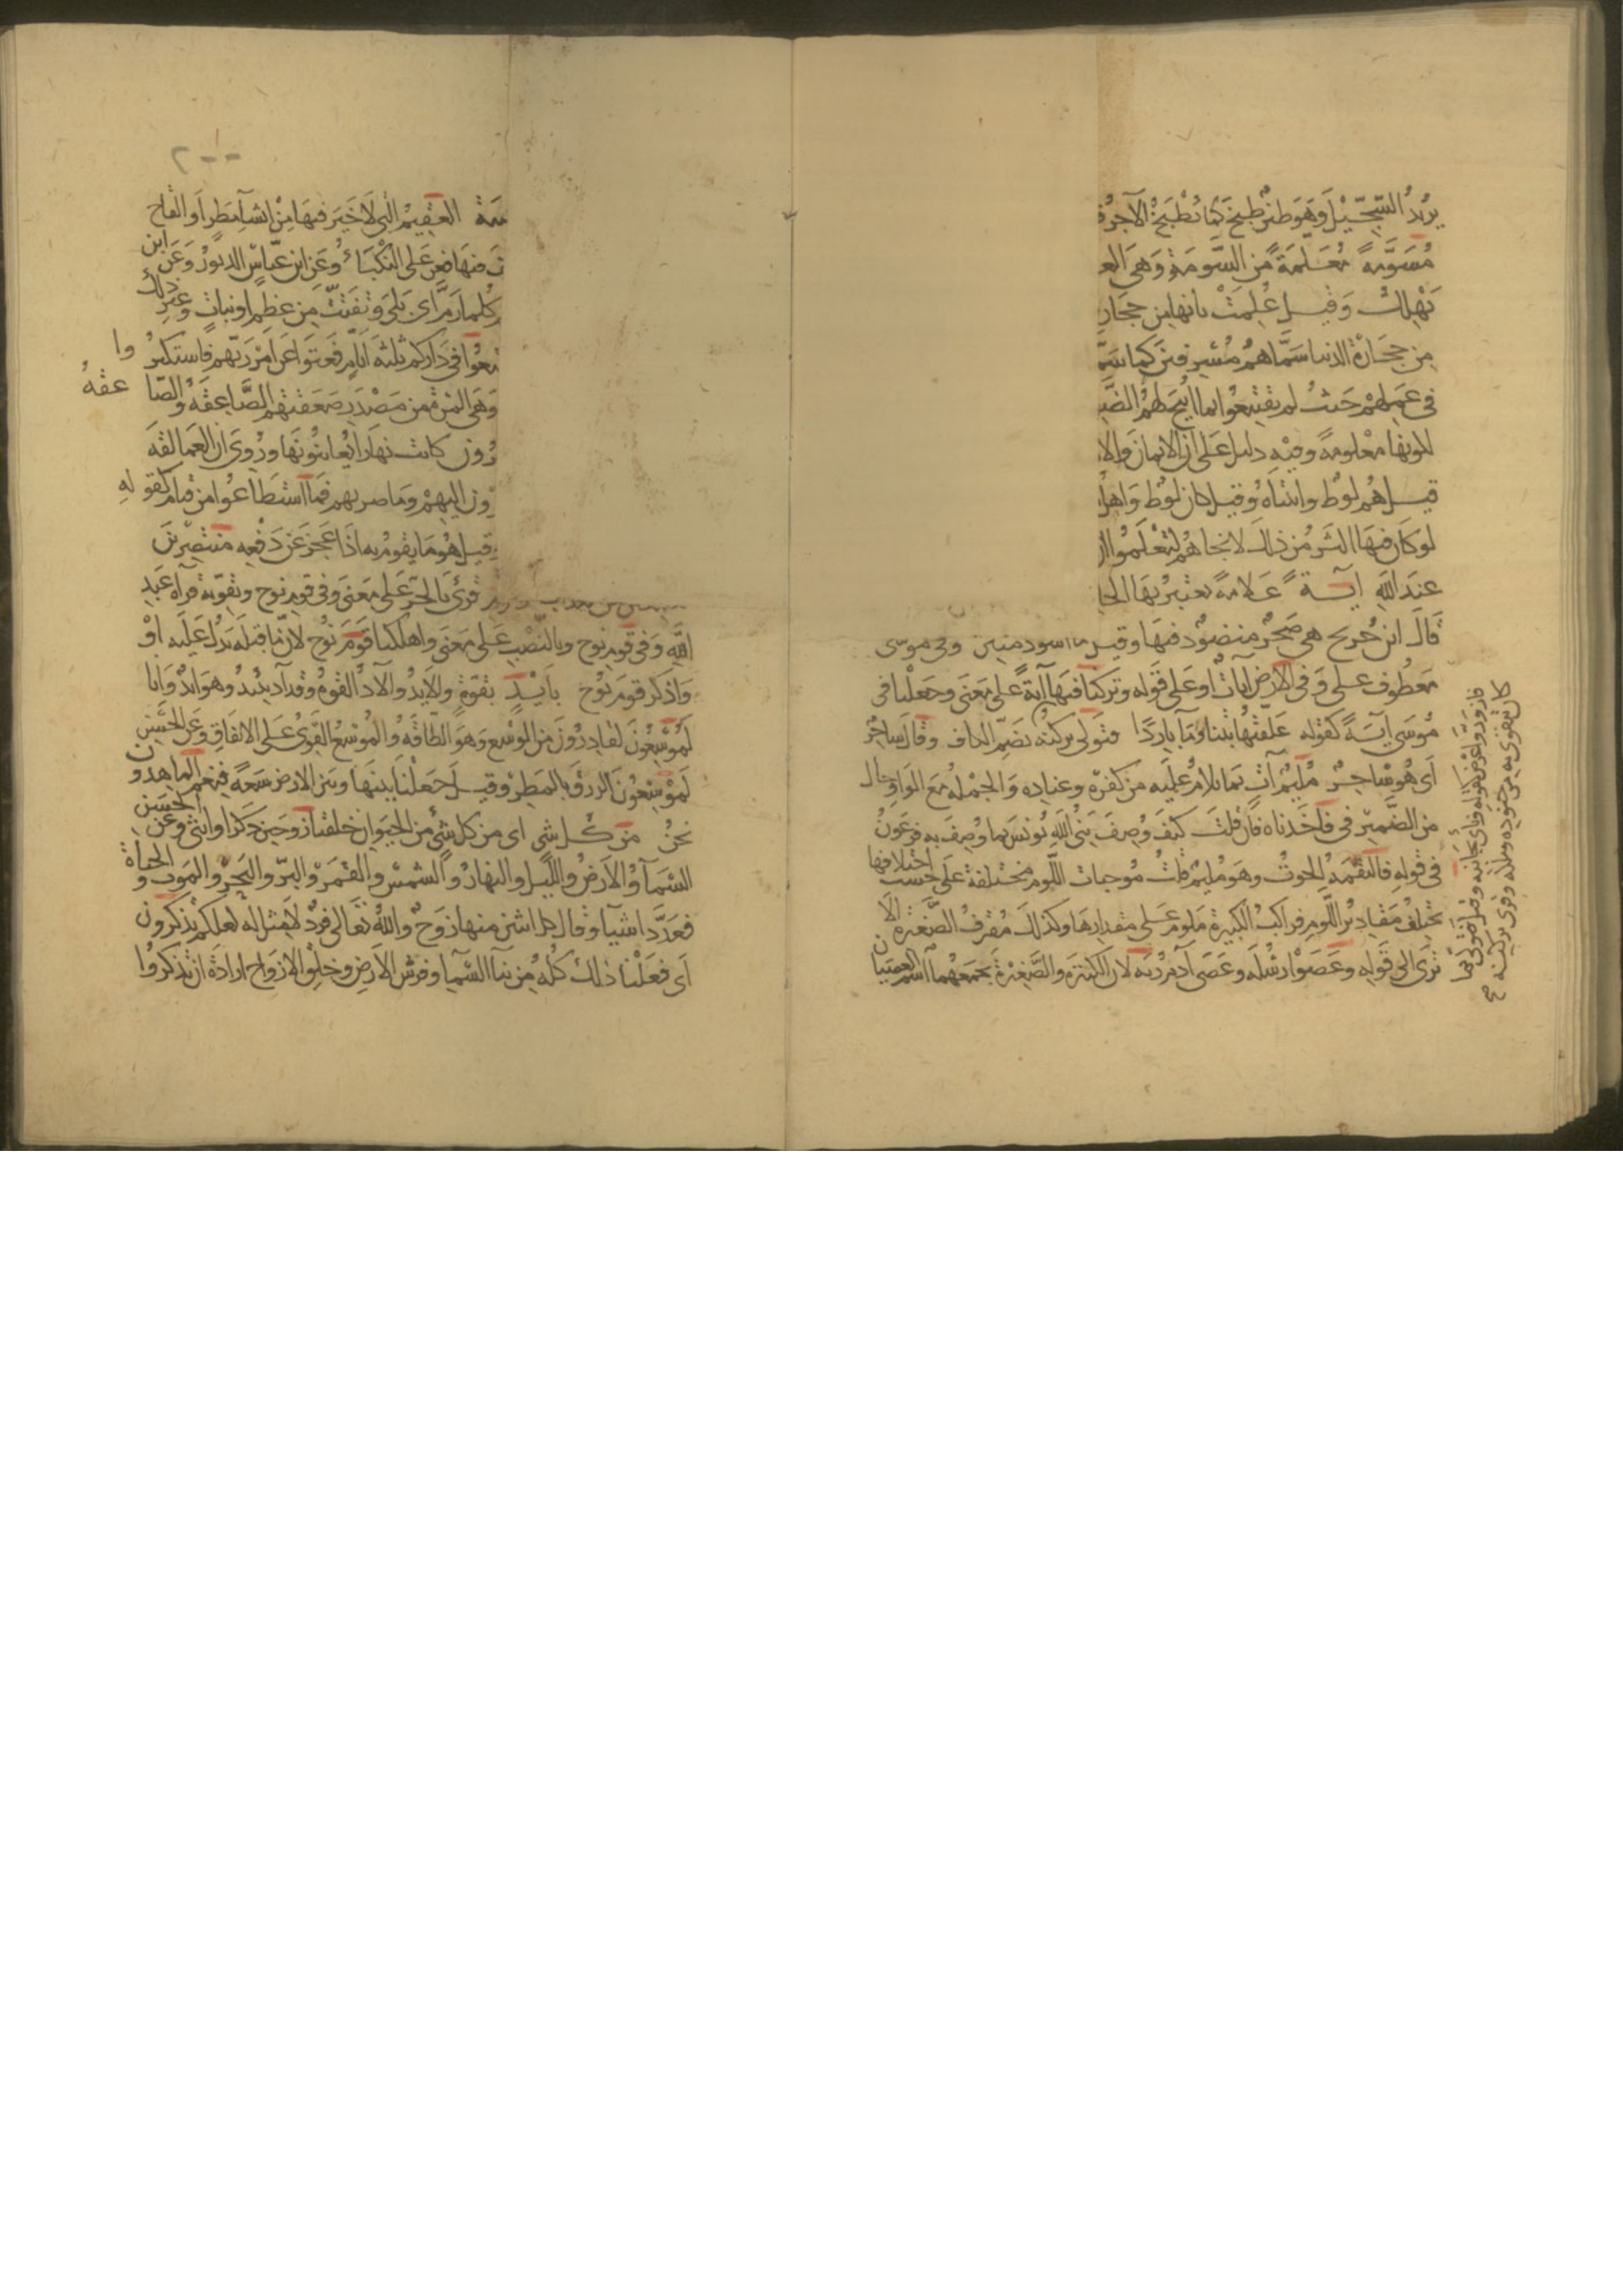 يريد السجيل وهو طين طبخ كما تطبخ الآجر
مسومة معلمة من السومة وهى
بهلك وقيل علمت بانها من حجار
من حجارة الدنيا سماهم مسرفين كما
فى عملهم حيث لم يقتنعوا بما ابيح لهم
لكونها معلومة وفيه دليل على ان الايمان والا
قيل هم لوط وابنتاه وقيل كان لوط واهل
لو كان فيها اكثر من ذلك لانجاهم لتعلموا ان
عند الله آية علامة يعتبر بها
قال ابن جريح هى صخر منضود فيها وقيل ما اسود منتن وفى موسى
معطوف على وفى الارض آيات او على قوله وتركنا فيها آية على معنى وجعلنا فى
موسى آية كقوله علفتها تبنا وماء باردا فتولى بركنه بضم الكاف وقال ساحر
اى هو ساحر مليم آت بما يلام عليه من كفره وعناده والجملة مع الواو حال
من الضمير فى فاخذناه فان قلت كيف وصف نبى الله يونس بما وصف به فرعون
فى قوله فالتقمه الحوت وهو مليم قلت موجبات اللوم مختلفة على حسب اختلافها
تختلف مقادير اللوم فراكب الكبيرة ملوم على مقدارها وكذلك مقترف الصغيرة الا
ترى الى قوله وعصوا رسله وعصى آدم ربه لان الكبيرة والصغيرة يجمعهما اسم العصيان
فازور واعرض كقوله ونأى بجانبه وقيل فتولى بما
كان يتقوى به من جنوده وملكه وقرئ بركنه
٢٠٠
العقيم التى لا خير فيها من انشاء مطر او القاح
فعن على النكباء وعن ابن عباس الدبور وعن ابن
كلما رم اى بلى وتفتت من عظم او نبات وغير ذلك
تمتعوا فى داركم ثلثة ايام فعتوا عن امر ربهم فاستكبروا
وهى المرة من مصدر صعقتهم الصاعقة والصاعقة
كانت نهارا يعاينونها وروى ان العمالقة
اليهم وما ضربهم فما استطاعوا من قيام كقوله
قيل هو ما يقوم به اذا عجز عن دفعه منتصرين
قرئ بالجر على معنى وفى قوم نوح وتقويه قرآة عبد
الله وفى قوم نوح وبالنصب على معنى واهلكنا قوم نوح لان ما قبله يدل عليه او
واذكر قوم نوح بايد بقوة والايد والآد القوة وقد آد يئيد وهو ايد وانا
لموسعون لقادرون من الوسع وهو الطاقة والموسع القوى على الانفاق وعن الحسن
لموسعون الرزق بالمطر وقيل جعلنا بينها وبين الارض سعة فنعم الماهدون
نحن من كل شى اى من كل شئ من الحيوان خلقنا زوجين ذكرا وانثى وعن الحسن
السماء والارض والليل والنهار والشمس والقمر والبر والبحر والموت والحياة
فعدد اشياء وقال كل اثنين منها زوج والله تعالى فرد لا مثل له لعلكم تذكرون
اى فعلنا ذلك كله من بناء السماء وفرش الارض وخلق الازواج ارادة ان تذكروا